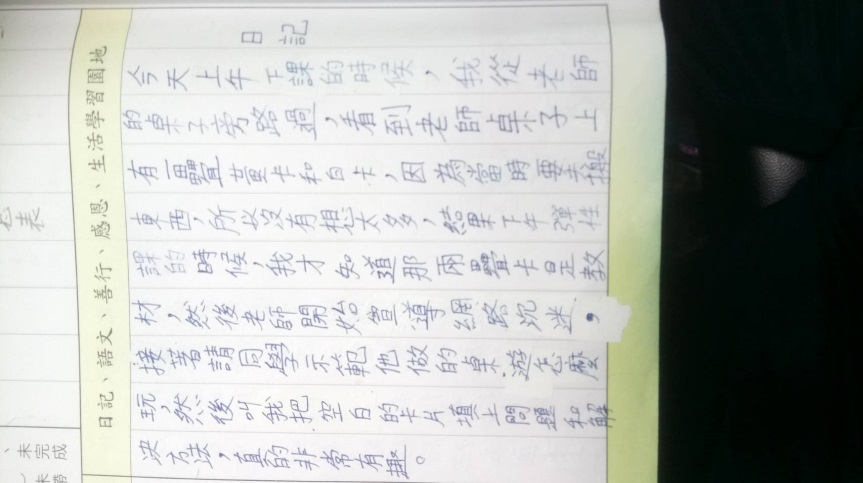 日記、語文、善行、感恩、生活學習園地
日記
今天上午下課的時候，我從老師
的桌子旁路過，看到老師桌子上
有一疊黃卡和白卡，因為當時要去搬
東西，所以沒有想太多，結果下午彈性
課的時候，我才知道那兩疊卡是教
材，然後老師開始宣導網路沉迷，
接著請同學示範他做的桌遊怎麼
玩，然後叫我把空白的卡片填上問題和解
決方法，真的非常有趣。
表
、未完成
、未帶